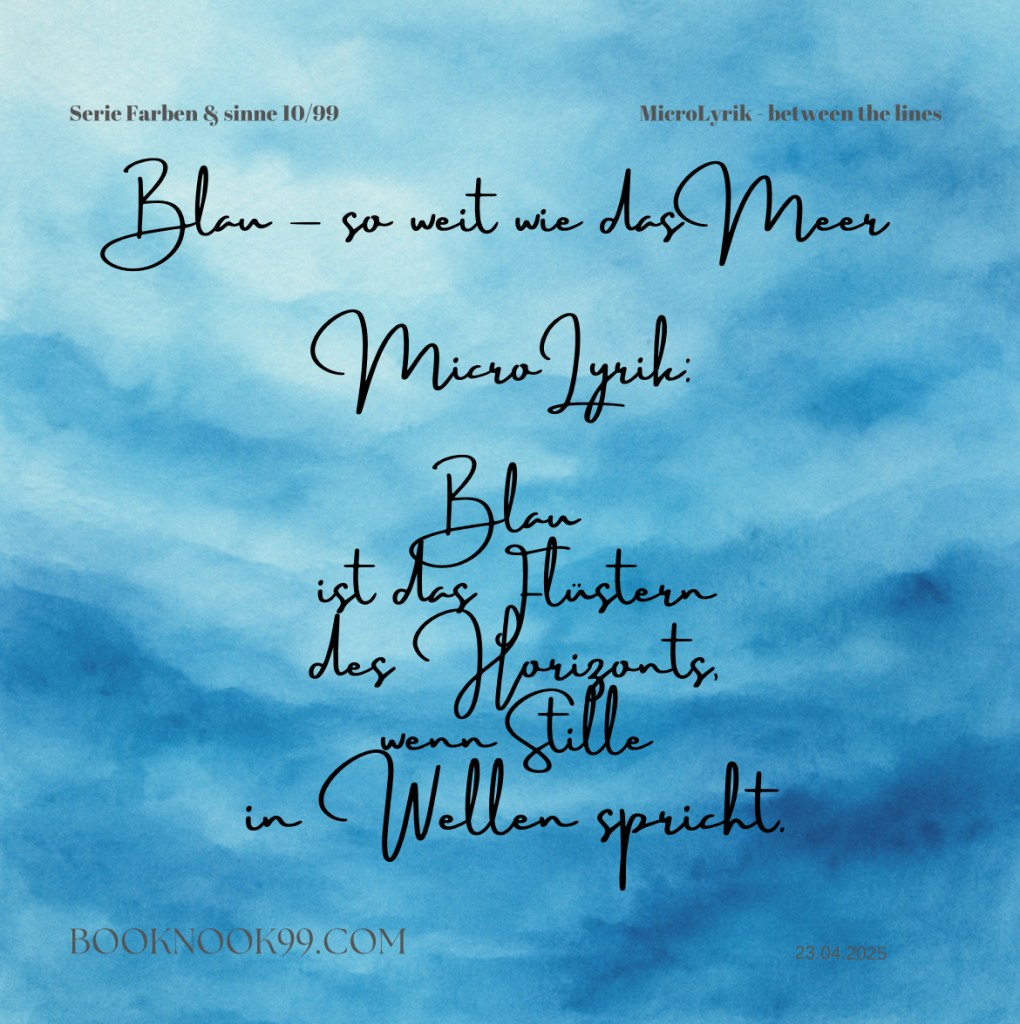 Serie Farben & sinne 10/99
MicroLyrik - between the lines
Blau – so weit wie das Meer
MicroLyrik:
Blau
ist das Flüstern
des Horizonts,
wenn Stille
in Wellen spricht.
BOOKNOOK99.COM
23.04.2025